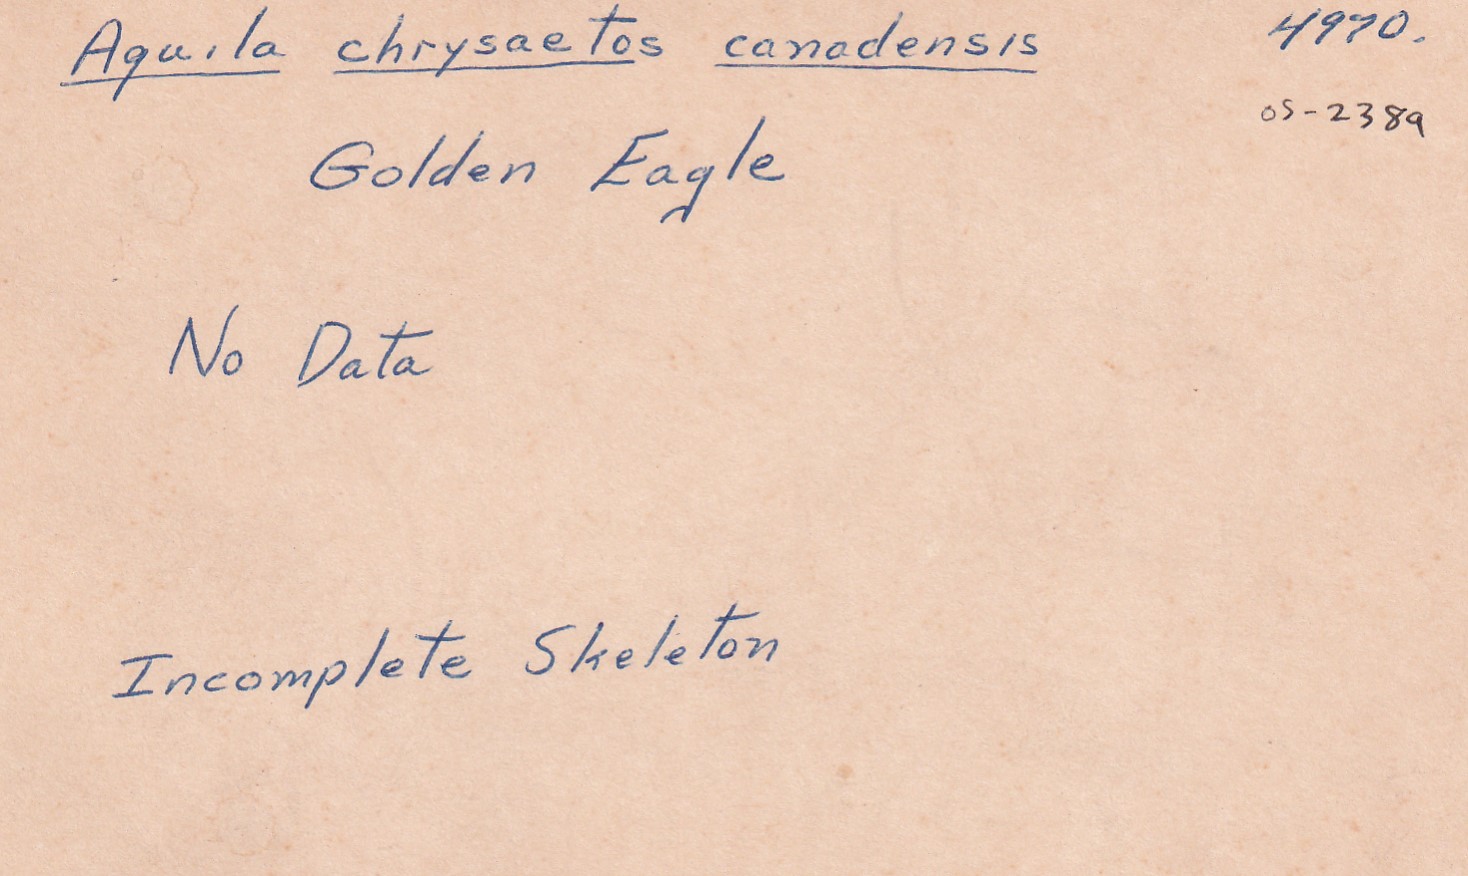 Aquila chrysaetos canadensis 4970.
OS-2389
Golden Eagle
No Data
Incomplete Skeleton